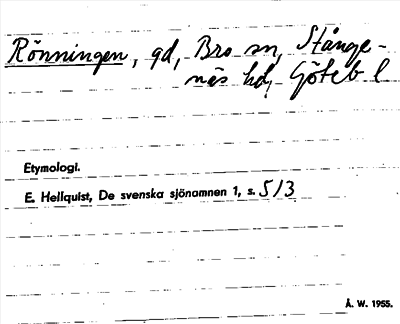 Rönningen, gd, Bro sn, Stånge-
näs hd, Göteb l
Etymologi.
E. Hellquist, De svenska sjönamnen 1, s. 513
Å. W. 1955.